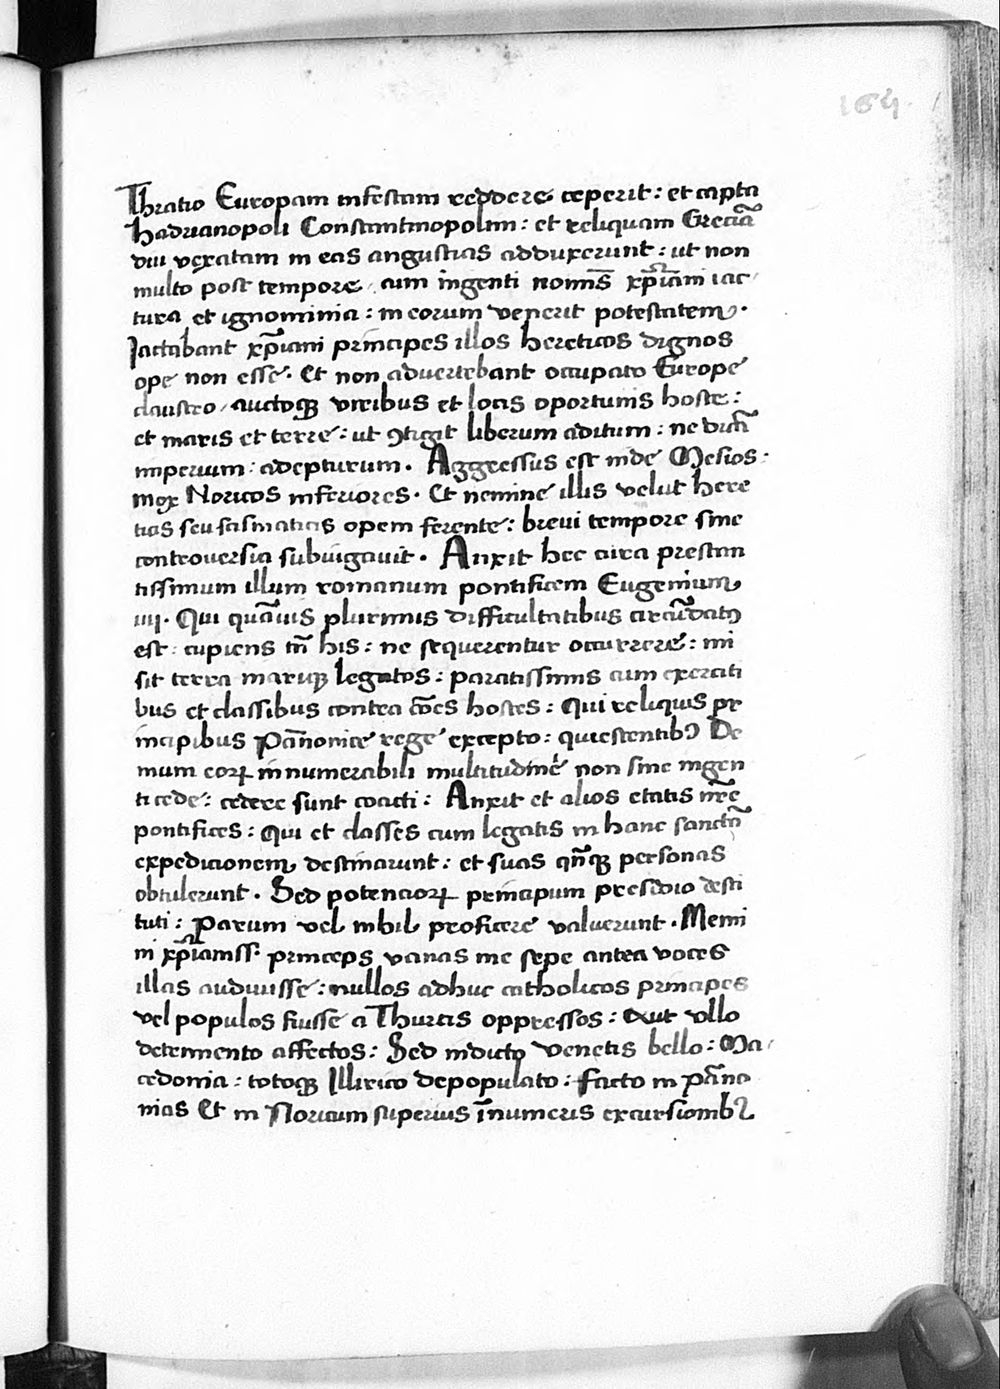 164.
Thratio Europam infestam reddere ceperit: et capta
Hadrianopoli Constantinopolim: et reliquam Greciā
diu vexatam in eas angustias adduxerunt: ut non
multo post tempore, cum ingenti nomīs xp̄iani iac
tura et ignominia: in eorum venerit potestatem.
Jactabant xp̄iani principes illos hereticos dignos
ope non esse. Et non advertebant occupato Europe
claustro, auctoqꝫ viribus et locis oportunis hoste:
et maris et terre: ut ꝯtigit liberum aditum: ne dicā
imperium: adepturum. Aggressus est inde Mesios:
mox Noricos inferiores. Et nemine illis velut here
ticis seu scismaticis opem ferente: brevi tempore sine
controversia subiugavit. Anxit hec cura prestan
tissimum illum romanum pontificem Eugenium
iiij. Qui quāvis plurimis difficultatibus circūdatꝰ
est: cupiens tn̄ his: ne sequerentur occurrere: mi
sit terra mariqꝫ legatos: paratissimis cum exerciti
bus et classibus contra cōes hostes: Qui reliquis pr
incipibus Pān̄onie rege excepto: quiescentibꝰ De
mum eoꝝ innumerabili multitudinē non sine ingen
ti cede: cedere sunt coacti: Anxit et alios etatis nr̄e
pontifices: Qui et classes cum legatis in hanc sanctā
expedicionem destinarunt: et suas qn̄qꝫ personas
obtulerunt. Sed potencioꝝ principum presidio desti
tuti: Parum vel nihil proficere valuerunt. Memi
ni xp̄ianiss. princeps varias me sepe antea voces
illas audivisse: nullos adhuc catholicos principes
vel populos fuisse a Thurcis oppressos: Aut ullo
detrimento affectos: Sed indicto Venetis bello: Ma
cedonia: totoqꝫ Illirico depopulato: facto in pān̄o
nias Et in Noricum superius īnumeris excursionibꝰ